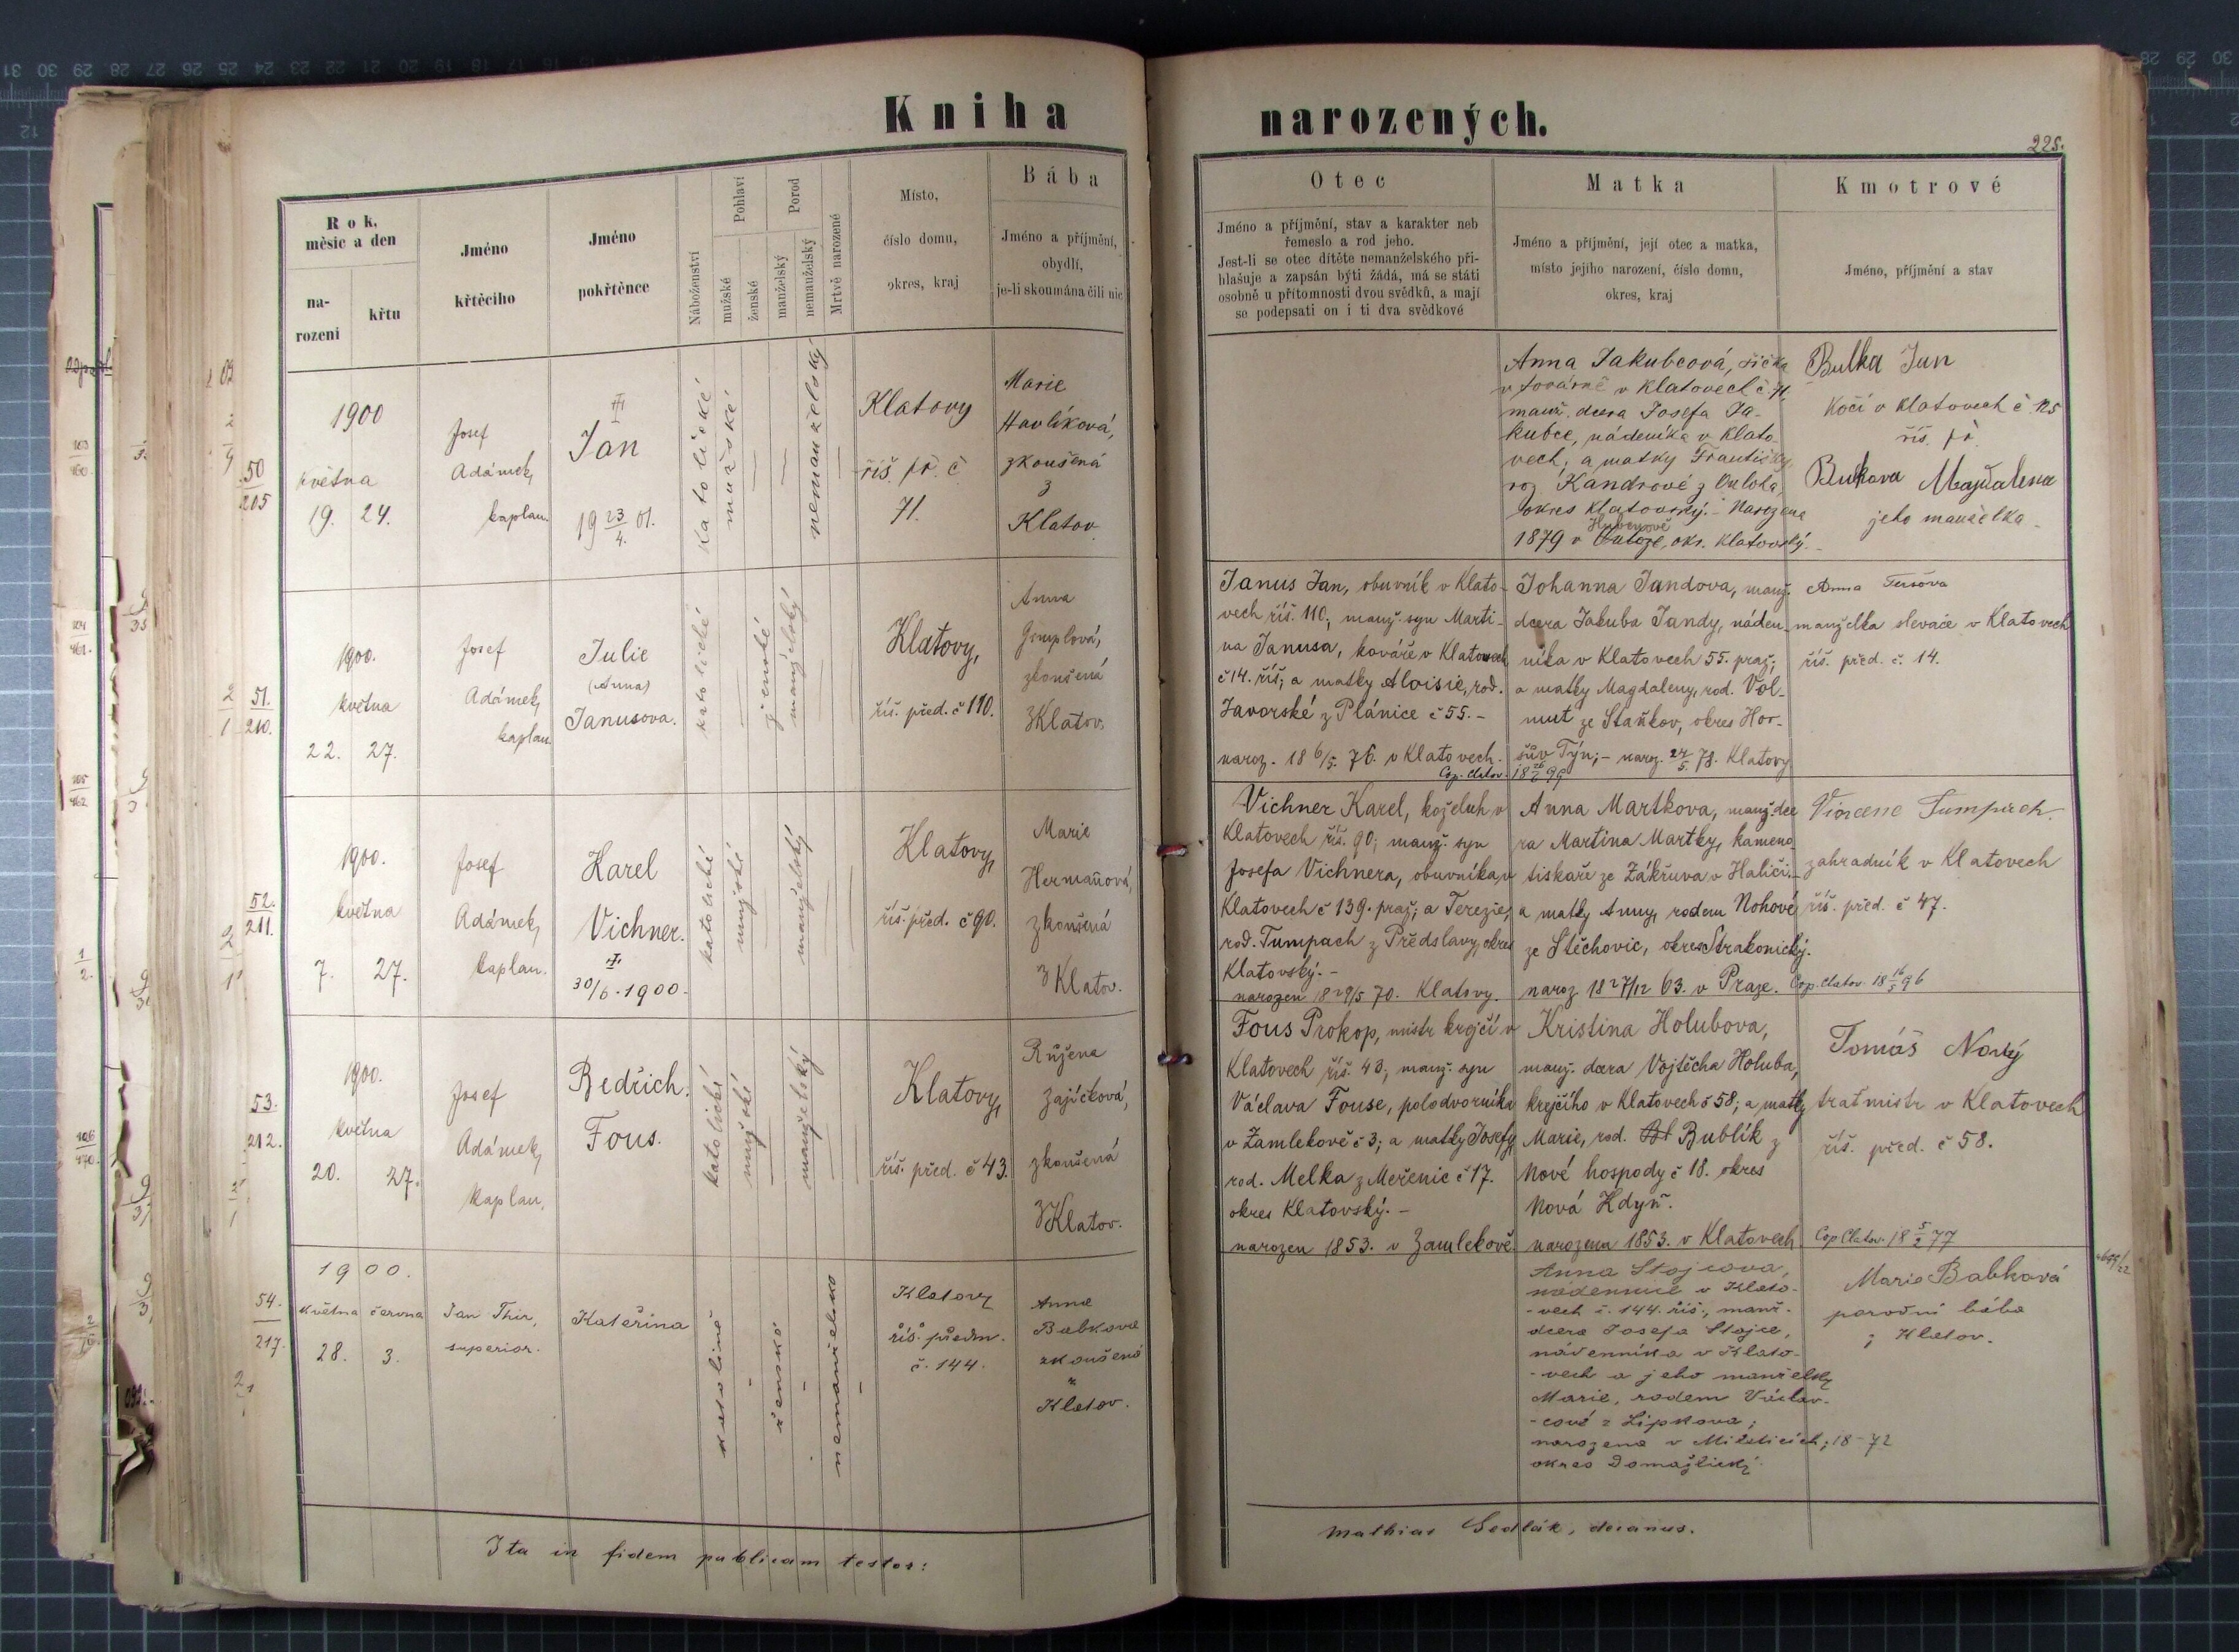 Kniha narozených.
225.
Rok, měsíc a den
na-
rození
křtu
Jméno
křtěcího
Jméno
pokřtěnce
Náboženství
Pohlaví
mužské
ženské
Porod
manželský
nemanželský
Mrtvě narozené
Místo,
číslo domu,
okres, kraj
Bába
Jméno a příjmění,
obydlí,
je-li skoumána čili nic
Otec
Jméno a příjmění, stav a karakter neb
řemeslo a rod jeho.
Jest-li se otec dítěte nemanželského při-
hlašuje a zapsán býti žádá, má se státi
osobně u přítomnosti dvou svědků, a mají
se podepsati on i ti dva svědkové
Matka
Jméno a příjmění, její otec a matka,
místo jejího narození, číslo domu,
okres, kraj
Kmotrové
Jméno, příjmění a stav
50
205
1900
května
19. 24.
Josef
Adámek,
kaplan.
Jan
19 23/4. 01.
katolické
mužské
nemanželský
Klatovy
říš. př. č
71.
Marie
Havlíková,
zkoušená
z
Klatov.
Anna Jakubcová,
v továrně v Klatovech č 71,
manž. dcera Josefa Ja-
kubce, nádeníka v Klato-
vech, a matky Františky
roz. Kandrové z
okres Klatovský. - Narozena
1879 v okr. Klatovský.
Bulka Jan
Kočí v Klatovech č
říš. př.
Magdalena
jeho manželka
51.
210.
1900.
května
22. 27.
Josef
Adámek,
kaplan.
Julie
(Anna)
Janusova.
katolické
ženské
manželský
Klatovy,
říš. před. č 110.
Anna
Gomplová,
zkoušená
z Klatov.
Janus Jan, obuvník v Klato-
vech říš. 110, manž. syn Marti-
na Janusa, kováře v Klatovech
č 14. říš; a matky Aloisie, rod.
Javorské z Plánice č 55. -
naroz. 18 6/5. 76. v Klatovech.
Johanna Jandova, manž.
dcera Jakuba Jandy, náden-
níka v Klatovech 55. praž;
a matky Magdaleny, rod. Vol-
mut ze Staňkov, okres Hor-
šův Týn; - naroz. 24/5. 78. Klatovy
Cop. Clatov. 18 99
Anna
manželka slevače v Klatovech
říš. před. č. 14.
52.
211.
1900.
května
7. 27.
Josef
Adámek,
kaplan.
Karel
Vichner.
30/6. 1900.
katolické
mužské
manželský
Klatovy,
říš. před. č 90.
Marie
Heřmanová,
zkoušená
z Klatov.
Vichner Karel, koželuh v
Klatovech říš. 90; manž. syn
Josefa Vichnera, obuvníka, v
Klatovech č 139. praž; a Terezie,
rod. Tumpach z Předslavy, okres
Klatovský. -
narozen 18 29/5 70. Klatovy.
Anna Martkova, manž. dce
ra Martina Martky, kameno
tiskaře ze Zákřuva v Haliči. -
a matky Anny, rodem Nohové
ze Stěchovic, okres Strakonický.
naroz 18 27/12 63. v Praze. Cop. Clatov. 18 16/5 96
Vincenc Tumpach.
zahradník v Klatovech
říš. před. č 47.
53.
212.
1900.
května
20. 27.
Josef
Adámek,
kaplan.
Bedřich.
Fous.
katolické
mužské
manželský
Klatovy,
říš. před. č 43.
Růžena
Zajíčková,
zkoušená
z Klatov.
Fous Prokop, mistr krejčí v
Klatovech říš. 43; manž. syn
Václava Fouse, polodvorníka
v Zamlekově č 3; a matky Josefy,
rod. Melka z Měřenic č 17.
okres Klatovský. -
narozen 1853. v Zamlekově.
Kristina Holubova,
manž. dcera Vojtěcha Holuba,
krejčího v Klatovech č 58; a matky
Marie, rod. Bublík z
Nové hospody č 18. okres
Nová Kdyň.
narozena 1853. v Klatovech.
Tomáš Nový
traťmistr v Klatovech
říš. před. č 58.
Cop Clatov. 18 5/2 77
54.
217.
1900.
května června
28. 3.
Jan Thir,
superior.
Kateřina
katolické
ženské
nemanželské
Klatovy
říš. předm.
č. 144.
Anna
Babkova
zkoušená
z
Klatov.
Anna Stojcova,
nádennice v Klato-
-vech č. 144. říš., manž-
dcera Josefa Stojce,
nádenníka v Klato-
-vech a jeho manželky
Marie, rodem Václav-
-cové z Lipkova;
narozena v Miletících; 18-72
okres Domažlický.
Marie Babková
porodní bába
z Klatov.
Ita in fidem publicam testor:
Mathias Sedlák, decanus.